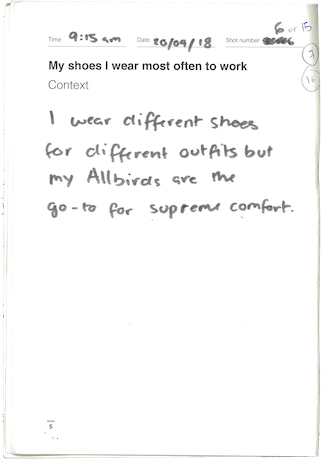 6 or 15
Time 9:15 am Date 20/09/18 Shot number
7
16
My shoes I wear most often to work
Context
I wear different shoes
for different outfits but
my Allbirds are the
go-to for supreme comfort.
5